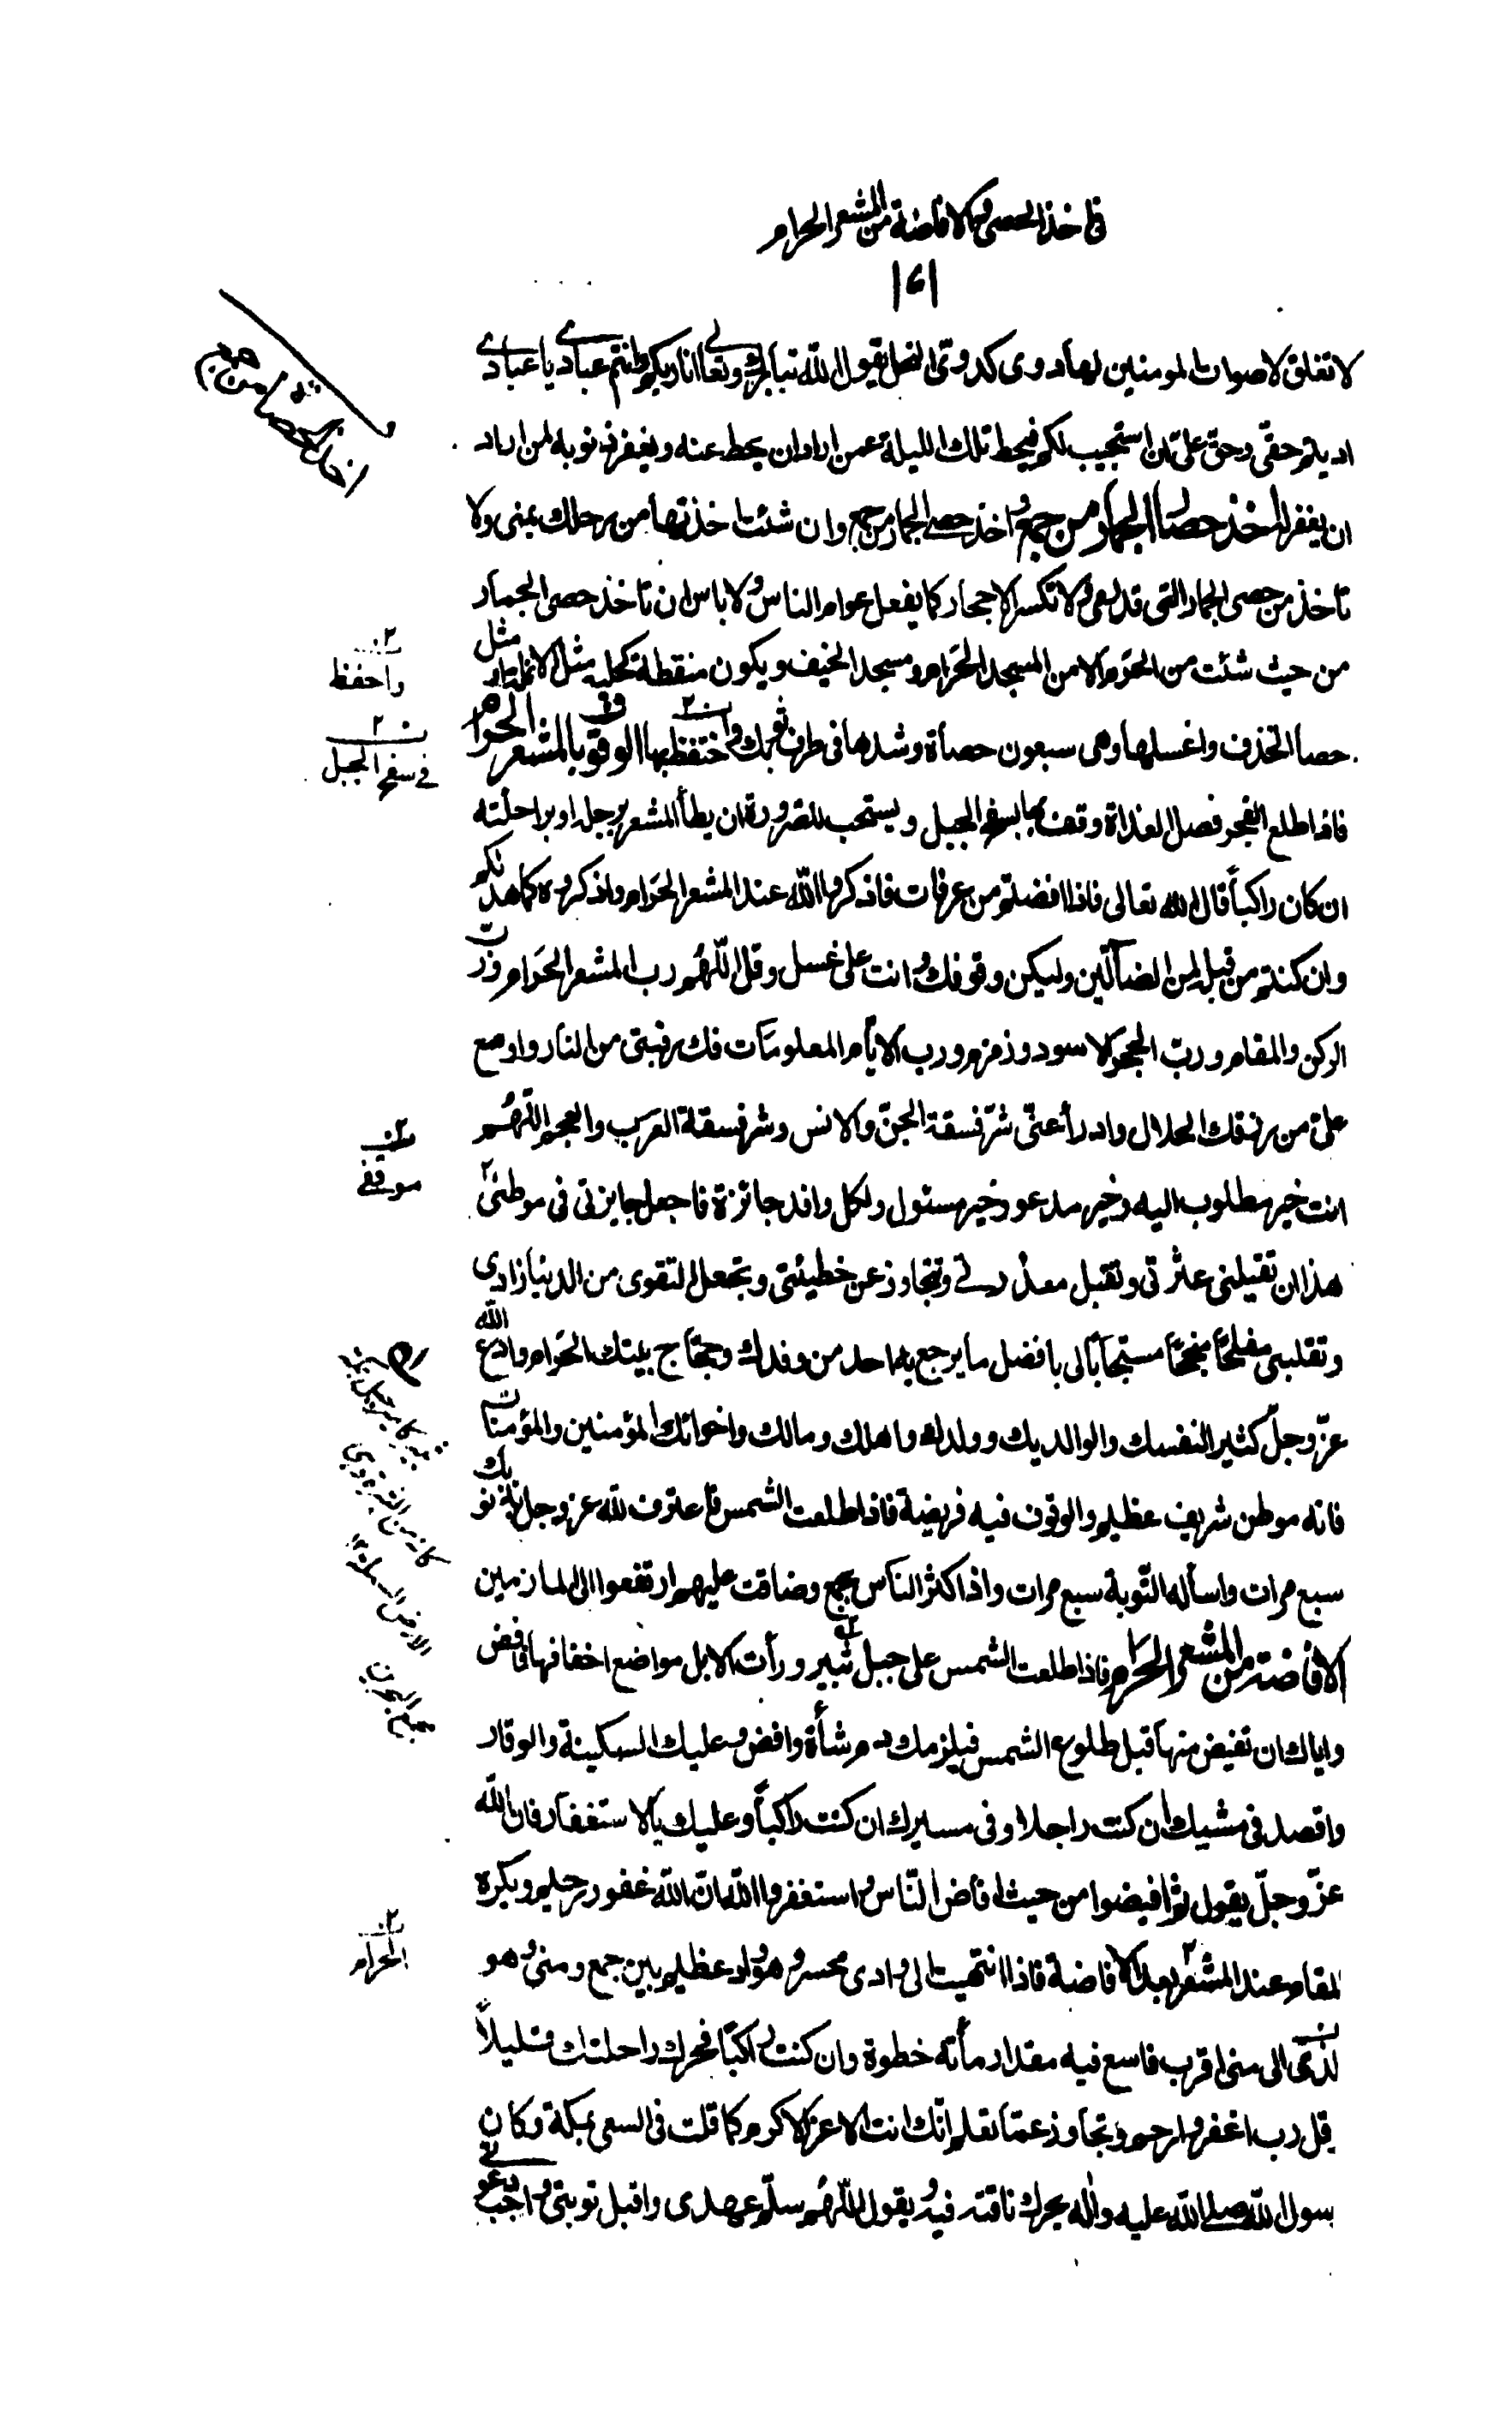 فى اخذ الحصى و الافاضة من المشعر الحرام
١٤١
لا تغلق لاصوات المومنين لها دوى كدوىّ النحل يقول الله تبارك وتعالى انا ربكم وانتم عبادى يا عبادى
اديتم حقّى وحق علىّ ان استجيب لكم فيحط تلك الليلة عمن اراد ان يحط عنه ويغفر ذنوبه لمن اراد
ان يغفر له اخذ حصا الجمار من جمع و اخذ حصى الجمار من جمع وان شئت اخذتها من رحلك بمنى ولا
تاخذ من حصى الجمار التى قد رمى ولا تكسر الاحجار كما يفعل عوام الناس ولا باس ان تاخذ حصى الجمار
من حيث شئت من الحرم الا من المسجد الحرام ومسجد الخيف ويكون منقطة كحلية مثل الانملة او مثل
حصا الخذف واغسلها وهى سبعون حصاة وشدها فى طرف ثوبك واحتفظ بها الوقوف بالمشعر الحرام
فاذا طلع الفجر فصل الغداة وقف بها بسفح الجبل ويستحب للصرورة ان يطأ المشعر برجله او براحلته
ان كان راكباً قال الله تعالى فاذا افضتم من عرفات فاذكروا الله عند المشعر الحرام واذكروه كما هديكم
وان كنتم من قبله لمن الضآلّين وليكن وقوفك وانت على غسل وقل اللّهم رب المشعر الحرام وربّ
الركن والمقام وربّ الحجر الاسود وزمزم ورب الايام المعلومات فك رقبتى من النار واوسع
علىّ من رزقك الحلال وادرأ عنّى شرّ فسقة الجنّ والانس وشر فسقة العرب والعجم اللّهم
انت خير مطلوب اليه وخير مدعو وخير مسئول ولكل وافد جائزة فاجعل جايزتى فى موطنى
هذا ان تقيلنى عثرتى وتقبل معذرتى وتتجاوز عن خطيئتى وتجعل التقوى من الدنيا زادى
وتقلبنى مفلحاً منجحاً مستجاباً لى بافضل ما يرجع به احد من وفدك وحجّاج بيتك الحرام وادع الله
عزّ وجلّ كثيرا لنفسك والوالديك وولدك واهلك ومالك واخوانك المؤمنين والمؤمنات
فانه موطن شريف عظيم والوقوف فيه فريضة فاذا طلعت الشمس فاعترف لله عز وجل بذنوبك
سبع مرات واسأله التّوبة سبع مرات واذا كثر الناس بجمع وضاقت عليهم ارتفعوا الى المازمين
الافاضة من المشعر الحرام فاذا طلعت الشمس على جبل ثبير ورأت الابل مواضع اخفافها فافض
واياك ان تفيض منها قبل طلوع الشمس فيلزمك دم شأة وافض وعليك السكينة والوقار
واقصد فى مشيك ان كنت راجلا وفى مسيرك ان كنت راكباً وعليك بالاستغفار فان الله
عزّ وجلّ يقول ثم افيضوا من حيث افاض النّاس واستغفروا الله انّ الله غفور رحيم ويكره
المقام عند المشعر بعد الافاضة فاذا انتهيت الى وادى محسر وهو واد عظيم بين جمع ومنى وهو
الى منى اقرب فاسع فيه مقدار مأته خطوة وان كنت راكباً فحرك راحلتك قليلاً
قل رب اغفر وارحم وتجاوز عمّا تعلم انّك انت الاعز الاكرم كما قلت فى السعى بمكة وكان
رسول الله صلى الله عليه واله يحرك ناقته فيه و يقول اللّهم سلّم عهدى واقبل توبتى واجب دعوتى
اخذ الحصا من جمع
واحفظ
فى سفح الجبل
موقفى
الحرام